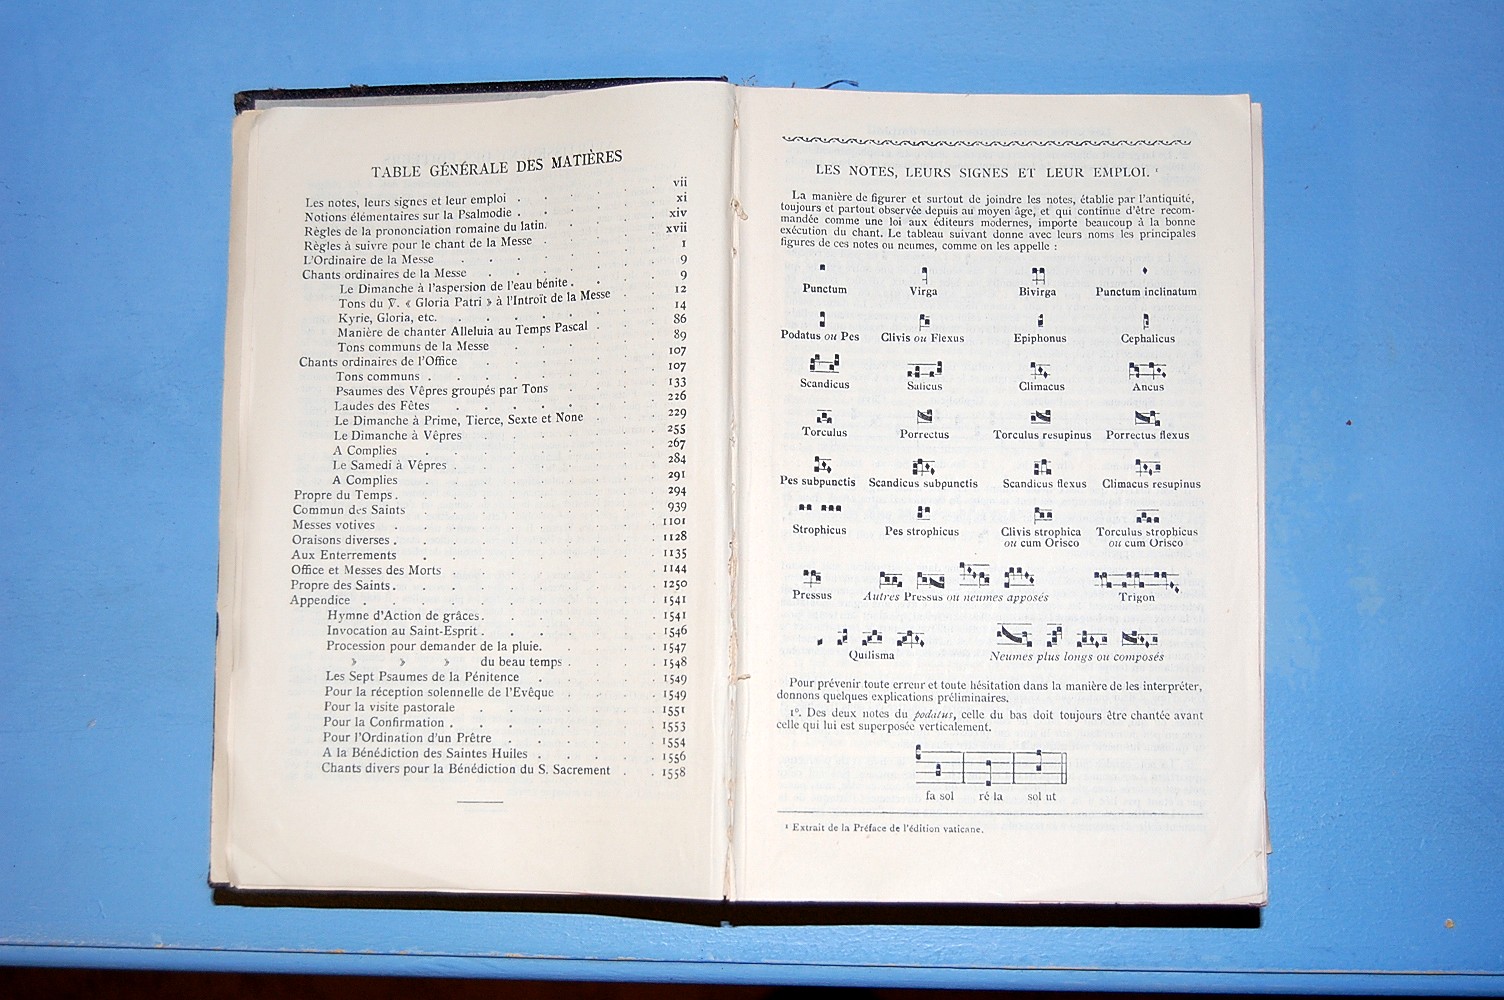 TABLE GÉNÉRALE DES MATIÈRES
Les notes, leurs signes et leur emploi . . . . . vii
Notions élémentaires sur la Psalmodie . . . . . xi
Règles de la prononciation romaine du latin. . . . . xiv
Règles à suivre pour le chant de la Messe . . . . xvii
L'Ordinaire de la Messe . . . . . 1
Chants ordinaires de la Messe . . . . . 9
Le Dimanche à l'aspersion de l'eau bénite . . . . 9
Tons du ℣. « Gloria Patri » à l'Introït de la Messe . . 12
Kyrie, Gloria, etc. . . . . . 14
Manière de chanter Alleluia au Temps Pascal . . . 86
Tons communs de la Messe . . . . . 89
Chants ordinaires de l'Office . . . . . 107
Tons communs . . . . . 107
Psaumes des Vêpres groupés par Tons . . . . 133
Laudes des Fêtes . . . . . 226
Le Dimanche à Prime, Tierce, Sexte et None . . . 229
Le Dimanche à Vêpres . . . . . 255
A Complies . . . . . 267
Le Samedi à Vêpres . . . . . 284
A Complies . . . . . 291
Propre du Temps . . . . . 294
Commun des Saints . . . . . 939
Messes votives . . . . . 1101
Oraisons diverses . . . . . 1128
Aux Enterrements . . . . . 1135
Office et Messes des Morts . . . . . 1144
Propre des Saints . . . . . 1250
Appendice . . . . . 1541
Hymne d'Action de grâces . . . . . 1541
Invocation au Saint-Esprit . . . . . 1546
Procession pour demander de la pluie. . . . 1547
» » » du beau temps . . . 1548
Les Sept Psaumes de la Pénitence . . . . 1549
Pour la réception solennelle de l'Evêque . . . . 1549
Pour la visite pastorale . . . . . 1551
Pour la Confirmation . . . . . 1553
Pour l'Ordination d'un Prêtre . . . . . 1554
A la Bénédiction des Saintes Huiles . . . . . 1556
Chants divers pour la Bénédiction du S. Sacrement . . 1558
LES NOTES, LEURS SIGNES ET LEUR EMPLOI. ¹
La manière de figurer et surtout de joindre les notes, établie par l'antiquité,
toujours et partout observée depuis au moyen âge, et qui continue d'être recom-
mandée comme une loi aux éditeurs modernes, importe beaucoup à la bonne
exécution du chant. Le tableau suivant donne avec leurs noms les principales
figures de ces notes ou neumes, comme on les appelle :
Punctum Virga Bivirga Punctum inclinatum
Podatus ou Pes Clivis ou Flexus Epiphonus Cephalicus
Scandicus Salicus Climacus Ancus
Torculus Porrectus Torculus resupinus Porrectus flexus
Pes subpunctis Scandicus subpunctis Scandicus flexus Climacus resupinus
Strophicus Pes strophicus Clivis strophica Torculus strophicus
ou cum Orisco ou cum Orisco
Pressus Autres Pressus ou neumes apposés Trigon
Quilisma Neumes plus longs ou composés
Pour prévenir toute erreur et toute hésitation dans la manière de les interpréter,
donnons quelques explications préliminaires.
1º. Des deux notes du podatus, celle du bas doit toujours être chantée avant
celle qui lui est superposée verticalement.
fa sol ré la sol ut
¹ Extrait de la Préface de l'édition vaticane.